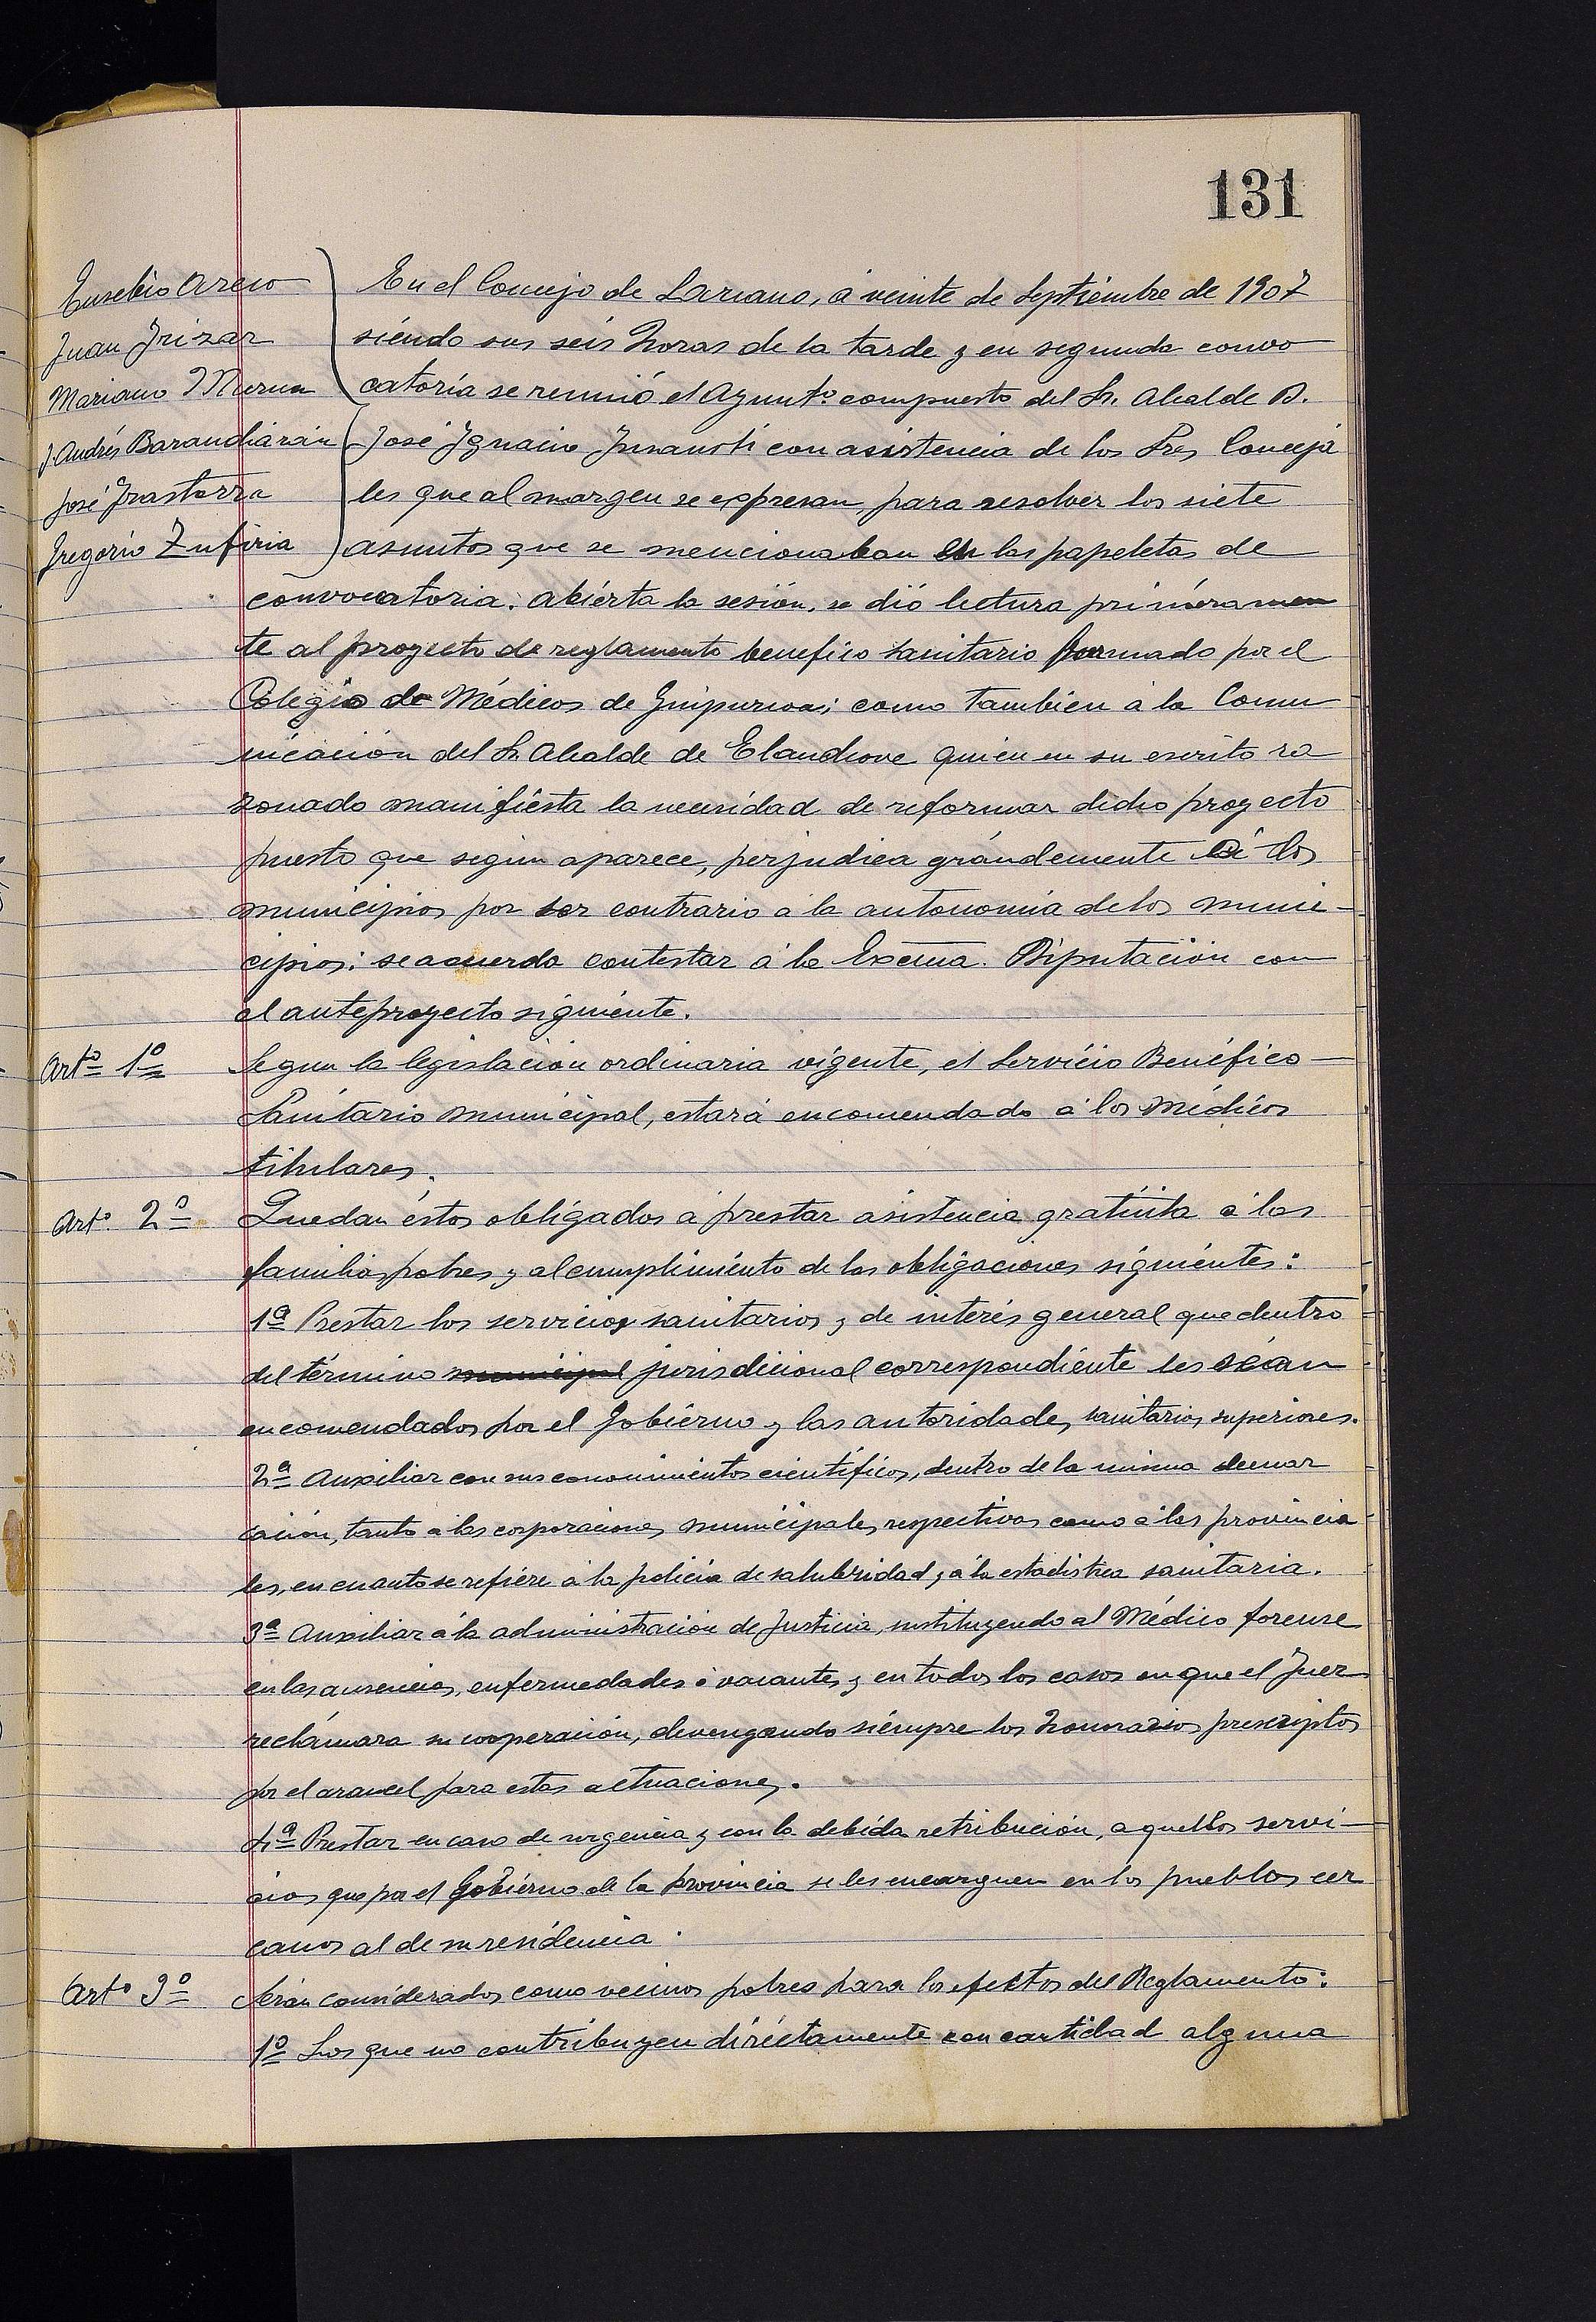 131
Eusebio Arcio
Juan Irizar
Mariano Murua
J. Andrés Barandiarán
José Irastorza
Gregorio Zufiria
En el Concejo de Lazcano, á veinte de Septiémbre de 1907
siéndo sus seis horas de la tarde y en segunda convo
catoría se reunió el Ayuntº compuesto del Sr. Alcalde D.
José Ygnacio Insausti con asistencia de los Sres Conceja
les que al margen se expresan, para resolver los siete
asuntos que se mencionaban en las papeletas de
convocatoria. Abiérta la sesión, se dió lectura priméramen
te al proyecto de reglamento benefico sanitario formado por el
Colegio de Médicos de Guipuzcoa; como tambien á la Comu
nicación del Sr. Alcalde de Elanchove quien en su escrito ra
zonado manifiésta la necesidad de reformar dicho proyecto
puesto que según aparece, perjudica grándemente á los
municipios por ser contrario á la autonomía de los muni-
cipios: se acuerda contestar á la Excma. Diputación con
el anteproyecto siguiénte.
Artº 1º Segun la legislación ordinaria vigente, el Servicio Benéfico
Sanitario municipal, estará encomendado á los Médicos
titulares.
Artº 2º Quedan éstos obligados á prestar asistencia gratuita á las
familias pobres y al cumplimiénto de las obligaciones siguiéntes:
1ª Prestar los servicios sanitarios y de interés general que dentro
del término municipal jurisdicional correspondiénte les séan
encomendados por el Gobiérno y las autoridades sanitarias superiores.
2ª Auxiliar con sus conocimientos cientíificos, dentro de la misma demar
cación, tanto á las corporaciones municipales respectivas como á las provincia
les, en cuanto se refiére á la policía de salubridad y á la estadistica sanitaria.
3ª Auxiliar á la administración de Justicia, sustituyendo al Médico forense
en las ausencias, enfermedades ó vacantes y en todos los casos en que el Juez
reclámara su cooperación, devengando siémpre los honorarios prescriptos
por el arancel para estas actuaciones.
4ª Prestar en caso de urgencia y con la debída retribución, aquellos servi-
cios que por el Gobiérno de la Provincia se les encarguen en los pueblos cer
canos al de su residencia.
Artº 3º Serán considerados como vecinos pobres para los efectos del Reglamento:
1º Los que no contribuyen diréctamente con cantidad alguna